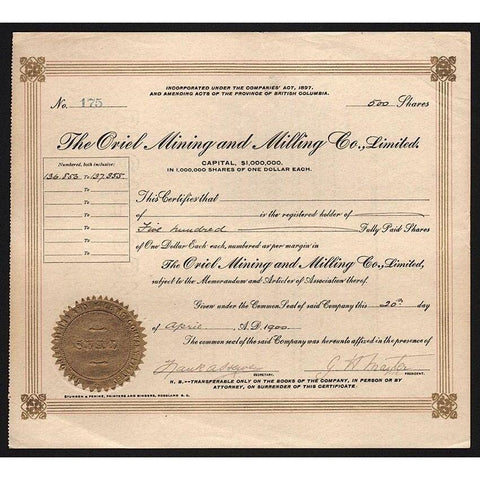 INCORPORATED UNDER THE COMPANIES' ACT, 1897.
AND AMENDING ACTS OF THE PROVINCE OF BRITISH COLUMBIA.
No. 175 500 Shares
The Oriel Mining and Milling Co., Limited.
CAPITAL, $1,000,000.
IN 1,000,000 SHARES OF ONE DOLLAR EACH.
Numbered, both inclusive:
136.855 To 137.355
To
To
To
To
To
This Certifies that
of is the registered holder of
Five hundred Fully Paid Shares
of One Dollar Each each, numbered as per margin in
The Oriel Mining and Milling Co., Limited,
subject to the Memorandum and Articles of Association thereof.
Given under the Common Seal of said Company this 20th day
of April A.D. 1900
The common seal of the said Company was hereunto affixed in the presence of
Frank
SECRETARY. PRESIDENT.
N. B.—TRANSFERABLE ONLY ON THE BOOKS OF THE COMPANY, IN PERSON OR BY
ATTORNEY, ON SURRENDER OF THIS CERTIFICATE.
PRINTERS AND BINDERS, ROSSLAND B. C.